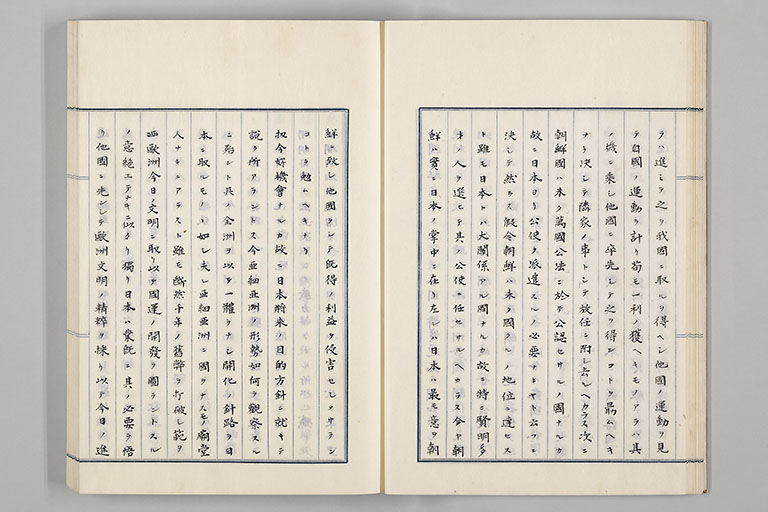 ラハ進ミテ之ヲ我國ニ取ルヲ得ヘシ他國ノ運動ヲ見
テ自國ノ運動ヲ計リ苟モ一利ノ獲ヘキモノアラハ其
ノ機ニ乗シ他國ニ卒先シテ之ヲ得ンコトヲ勗ムヘキ
ナリ决シテ隣家ノ事トシテ放任ニ附シ去ルヘカラス次ニ
朝鮮國ハ未タ萬國公法ニ於テ公認セサルノ國ナルカ
故ニ日本ヨリ公使ヲ派遣スルノ必要ナキヤト云フニ
决シテ然ラス假令朝鮮ハ未タ國タルノ地位ニ達セス
ト雖モ日本トハ大関係アル國ナルカ故ニ特ニ賢明多
才ノ人ヲ選ヒテ其ノ公使ニ任セサルヘカラス今ヤ朝
鮮ハ實ニ日本ノ掌中ニ在リ左レハ日本ハ最モ意ヲ朝
鮮ニ致シ他國ヲシテ既得ノ利益ヲ侵害セシメサラン
コトヲ勉ムヘキナリ
扨今好機會ナルカ故ニ日本将来ノ目的方針ニ就キテ
説ク所アラントス今亜細亜洲ノ形勢如何ヲ觀察スル
ニ殆ント其ノ全洲ヲ以テ一體ヲナシ開化ノ針路ヲ日
本ニ取ルモノヽ如シ夫レ亜細亜洲ニ國ヲナスモノ廟堂
人ナキニアラスト雖モ断然千年ノ舊弊ヲ打破シ範ヲ
西歐洲今日ノ文明ニ取リ以テ國運ノ開發ヲ圖ラントスル
ノ意絶エテナキニ似タリ獨リ日本ハ業既ニ其ノ必要ヲ悟
リ他國ニ先ンシテ歐洲文明ノ精粹ヲ採リ以テ今日ノ進